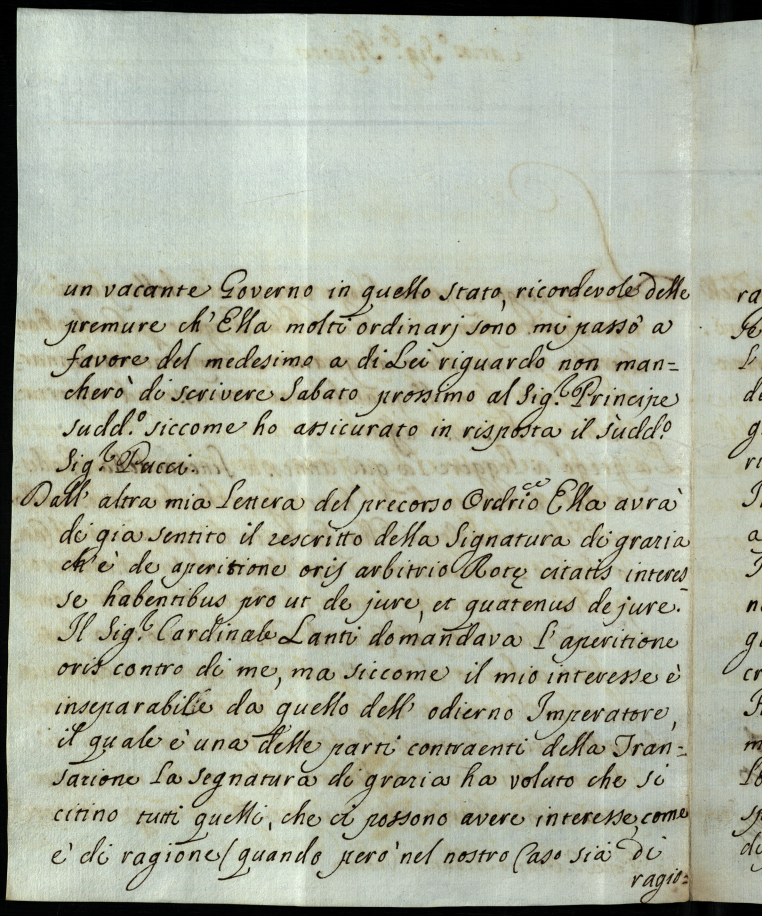 un vacante Governo in quello stato, ricordevole delle
premure ch'Ella molti ordinarj sono mi passò a
favore del medesimo a di Lei riguardo non man=
cherò di scrivere Sabato prossimo al Sig.r Principe
sudd.o siccome ho assicurato in risposta il sudd.o
Sig.r Pucci.
Dall' altra mia Lettera del precorso Ordrio Ella avrà
di gia sentito il rescritto della Signatura di grazia
ch'è de aperitione oris arbitrio Rotę citatis interes
se habentibus pro ut de jure, et quatenus de jure.
Il Sig.r Cardinale Lanti domandava l'aperitione
oris contro di me, ma siccome il mio interesse è
inseparabile da quello dell' odierno Imperatore,
il quale è una delle parti contraenti della Tran=
sazione la segnatura di grazia ha voluto che si
citino tutti quelli, che ci possono avere interesse, come
è di ragione/ quando però nel nostro Caso sia di
ragio=
ra
L'
de
g
ri
a
n
g
cr
m
sp